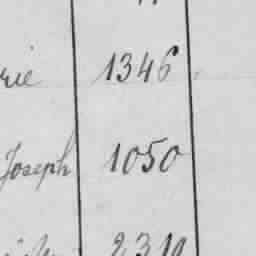 rie 1346
Joseph 1050
2310